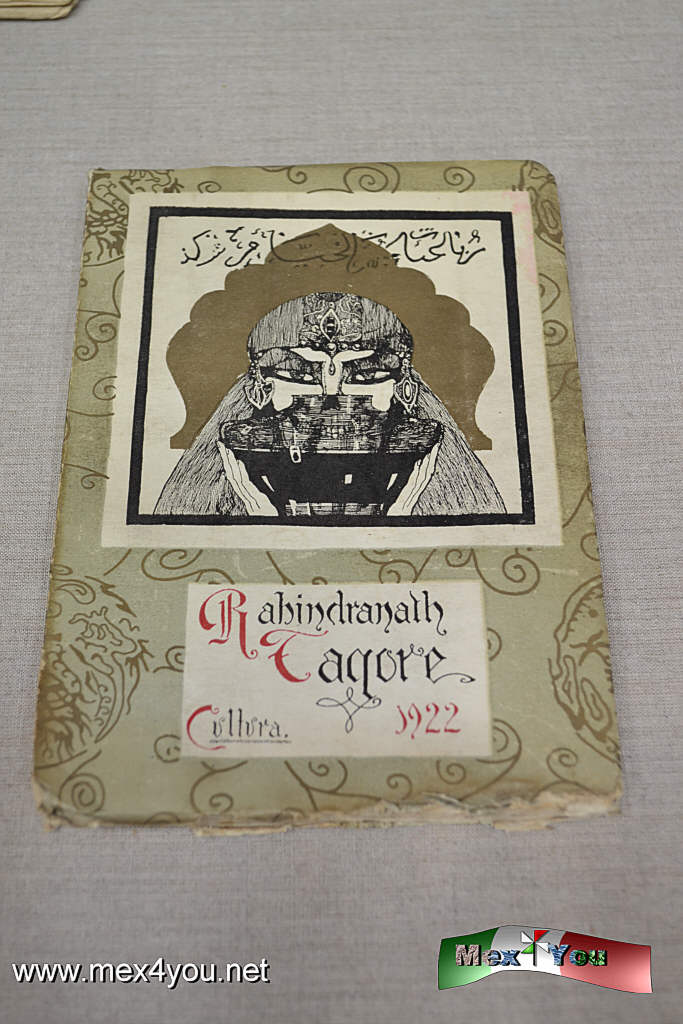 Rabindranath
Tagore
Cvltvra. 1922
www.mex4you.net
Mex4You